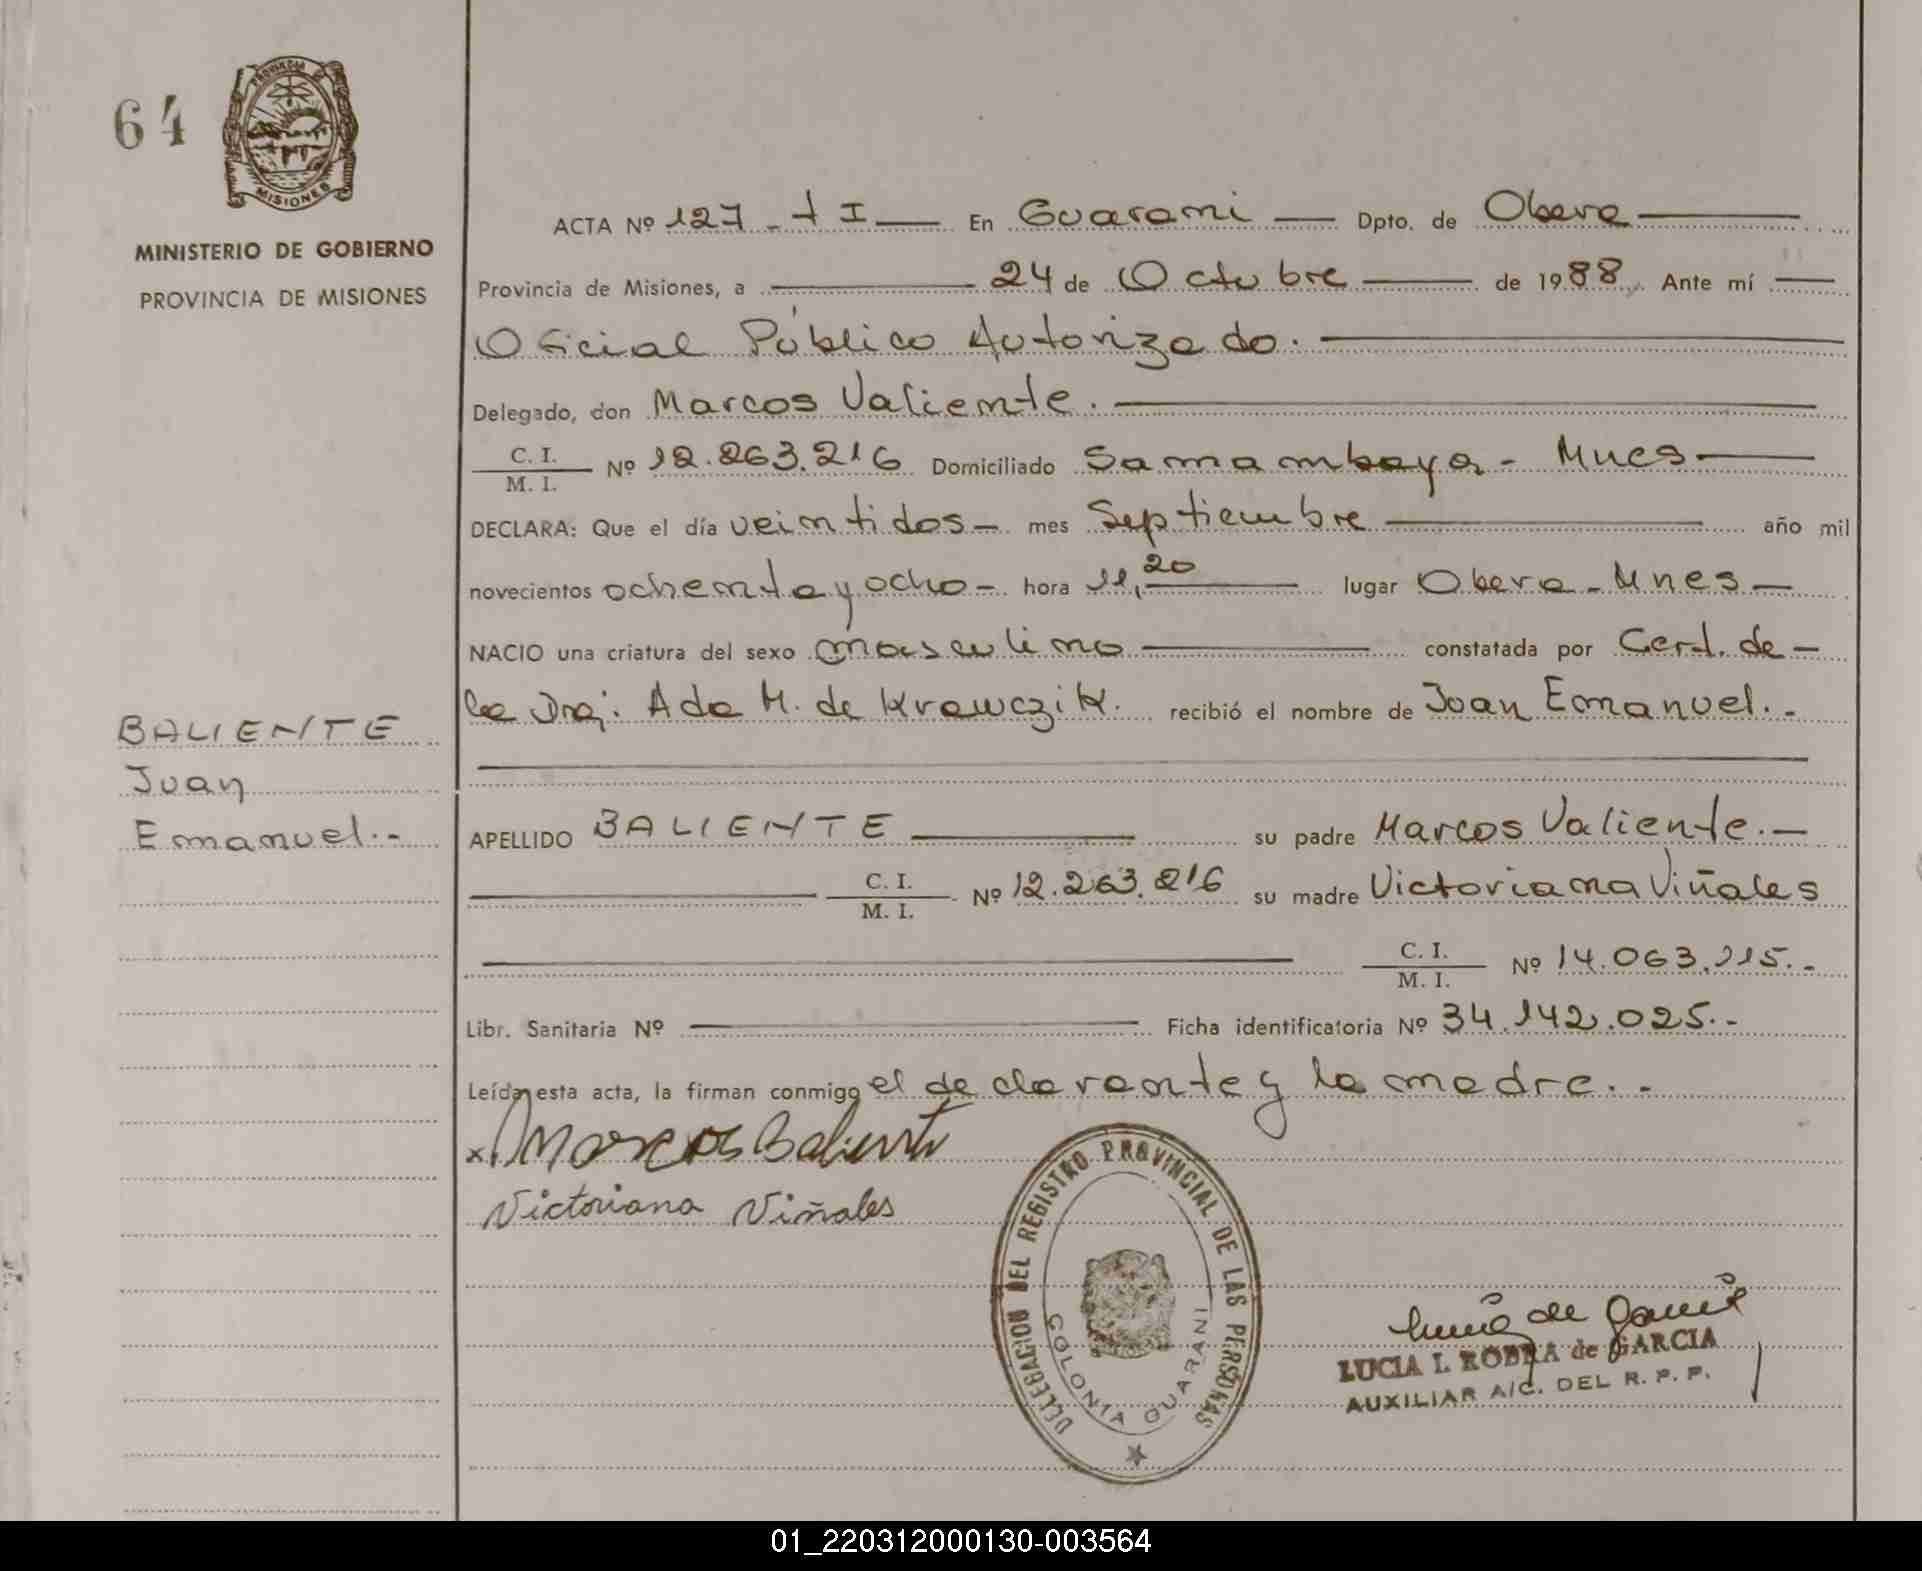 64
PROVINCIA DE
MISIONES
MINISTERIO DE GOBIERNO
PROVINCIA DE MISIONES
ACTA Nº 127 - t I — En Guarani — Dpto. de Obera —
Provincia de Misiones, a — 24 de Octubre — de 1988 Ante mí —
Oficial Público Autorizado. —
Delegado, don Marcos Valiente. —
C. I. / M. I. Nº 12.263.216 Domiciliado Samambaya - Mnes —
DECLARA: Que el día veintidos — mes Septiembre — año mil
novecientos ochenta y ocho — hora 11,20 — lugar Obera - Mnes —
NACIO una criatura del sexo masculino — constatada por Cert. de —
la Dra; Ada M. de Krawczik. recibió el nombre de Juan Emanuel. -
BALIENTE
Juan
Emanuel. -
APELLIDO BALIENTE — su padre Marcos Valiente. —
— C. I. / M. I. Nº 12.263.216 su madre Victoriana Viñales
— C. I. / M. I. Nº 14.063.115. -
Libr. Sanitaria Nº — Ficha identificatoria Nº 34.142.025. -
Leída esta acta, la firman conmigo el declarante y la madre. -
x Marcos Baliente
Victoriana Viñales
DELEGACION DEL REGISTRO PROVINCIAL DE LAS PERSONAS
COLONIA GUARANI
Lucia de Garcia
LUCIA I. ROBRA de GARCIA
AUXILIAR A/C. DEL R. P. P.
01_220312000130-003564